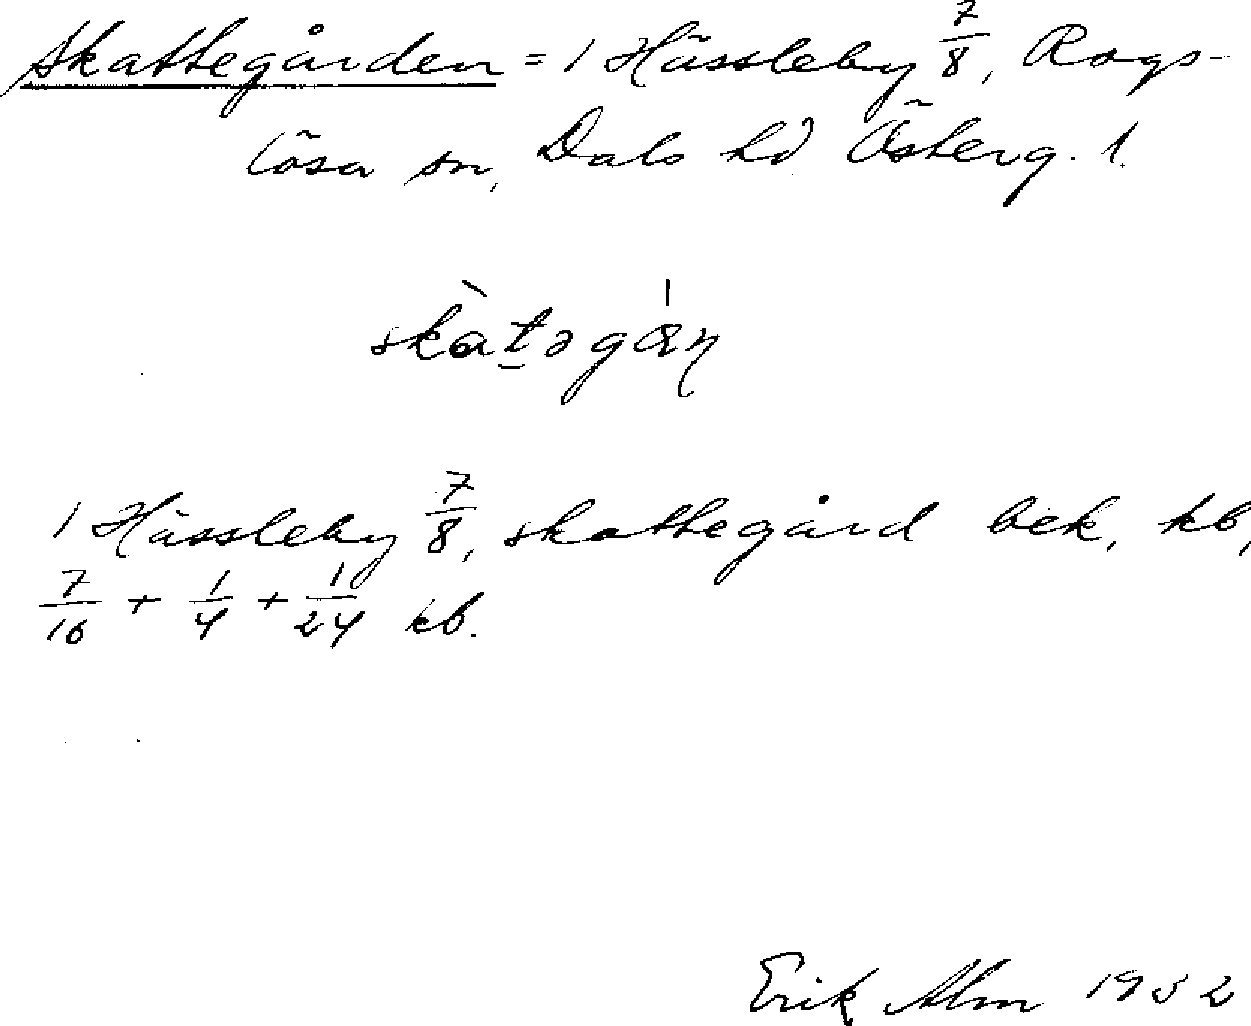 Skattegården = 1 Hässleby 7/8, Rogs-
lösa sn, Dals hd Österg. l.
skàtǝgá̊ṇ
1 Hässleby 7/8, skattegård bek, kb,
7/16 + 1/4 + 1/24 kb.
Erik Alm 1952